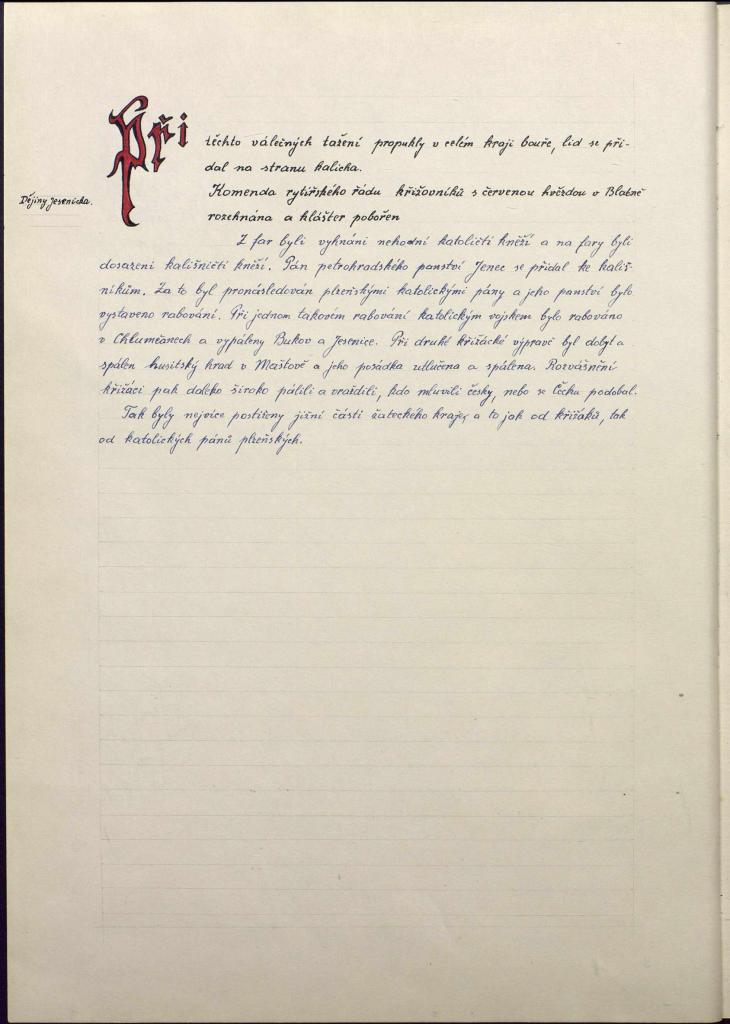 Při
těchto válečných tažení propukly v celém kraji bouře, lid se při-
dal na stranu kalicha.
Dějiny Jesenicka.
Komenda rytířského řádu křižovníků s červenou hvězdou v Blatně
rozehnána a klášter pobořen
Z far byli vyhnáni nehodní katoličtí kněží a na fary byli
dosazeni kališničtí kněží. Pán petrohradského panství Jenec se přidal ke kališ-
níkům. Za to byl pronásledován plzeňskými katolickými pány a jeho panství bylo
vystaveno rabování. Při jednom takovém rabování katolickým vojskem bylo rabováno
v Chlumčanech a vypáleny Bukov a Jesenice. Při druhé křižácké výpravě byl dobyt a
spálen husitský hrad v Maštově a jeho posádka utlučena a spálena. Rozvášnění
křižáci pak daleko široko pálili a vraždili, kdo mluvili česky, nebo se Čechu podobal.
Tak byly nejvíce postiženy jižní části žateckého kraje, a to jak od křižáků, tak
od katolických pánů plzeňských.